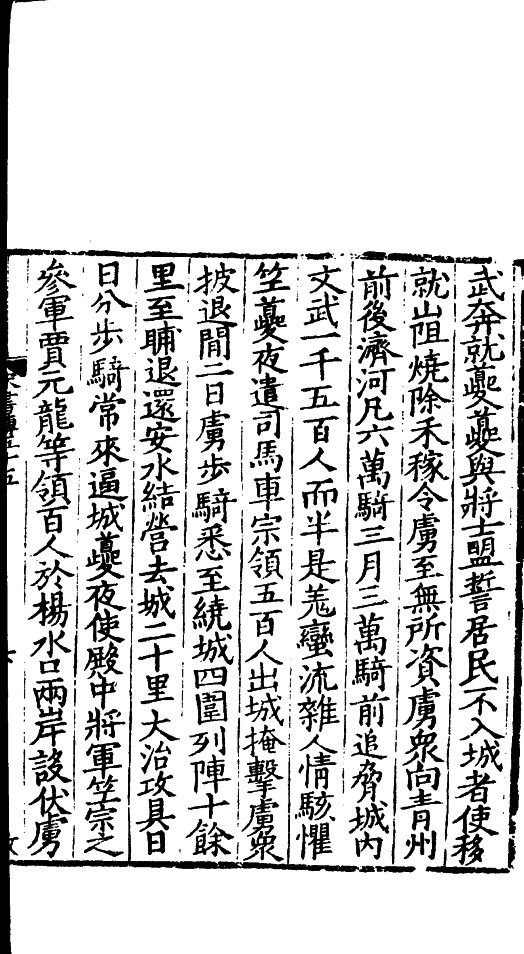 武奔就夔夔與將士盟誓居民不入城者使移
就山阻燒除禾稼令虜至無所資虜衆向青州
前後濟河凡六萬騎三月三萬騎前追脅城內
文武一千五百人而半是羗蠻流雜人情駭懼
笁夔夜遣司馬車宗領五百人出城掩擊虜衆
披退閒二日虜步騎悉至繞城四圍列陣十餘
里至晡退還安水結營去城二十里大治攻具日
日分步騎常來逼城夔夜使殿中將軍笁宗之
參軍賈元龍等領百人於楊水口兩岸設伏虜